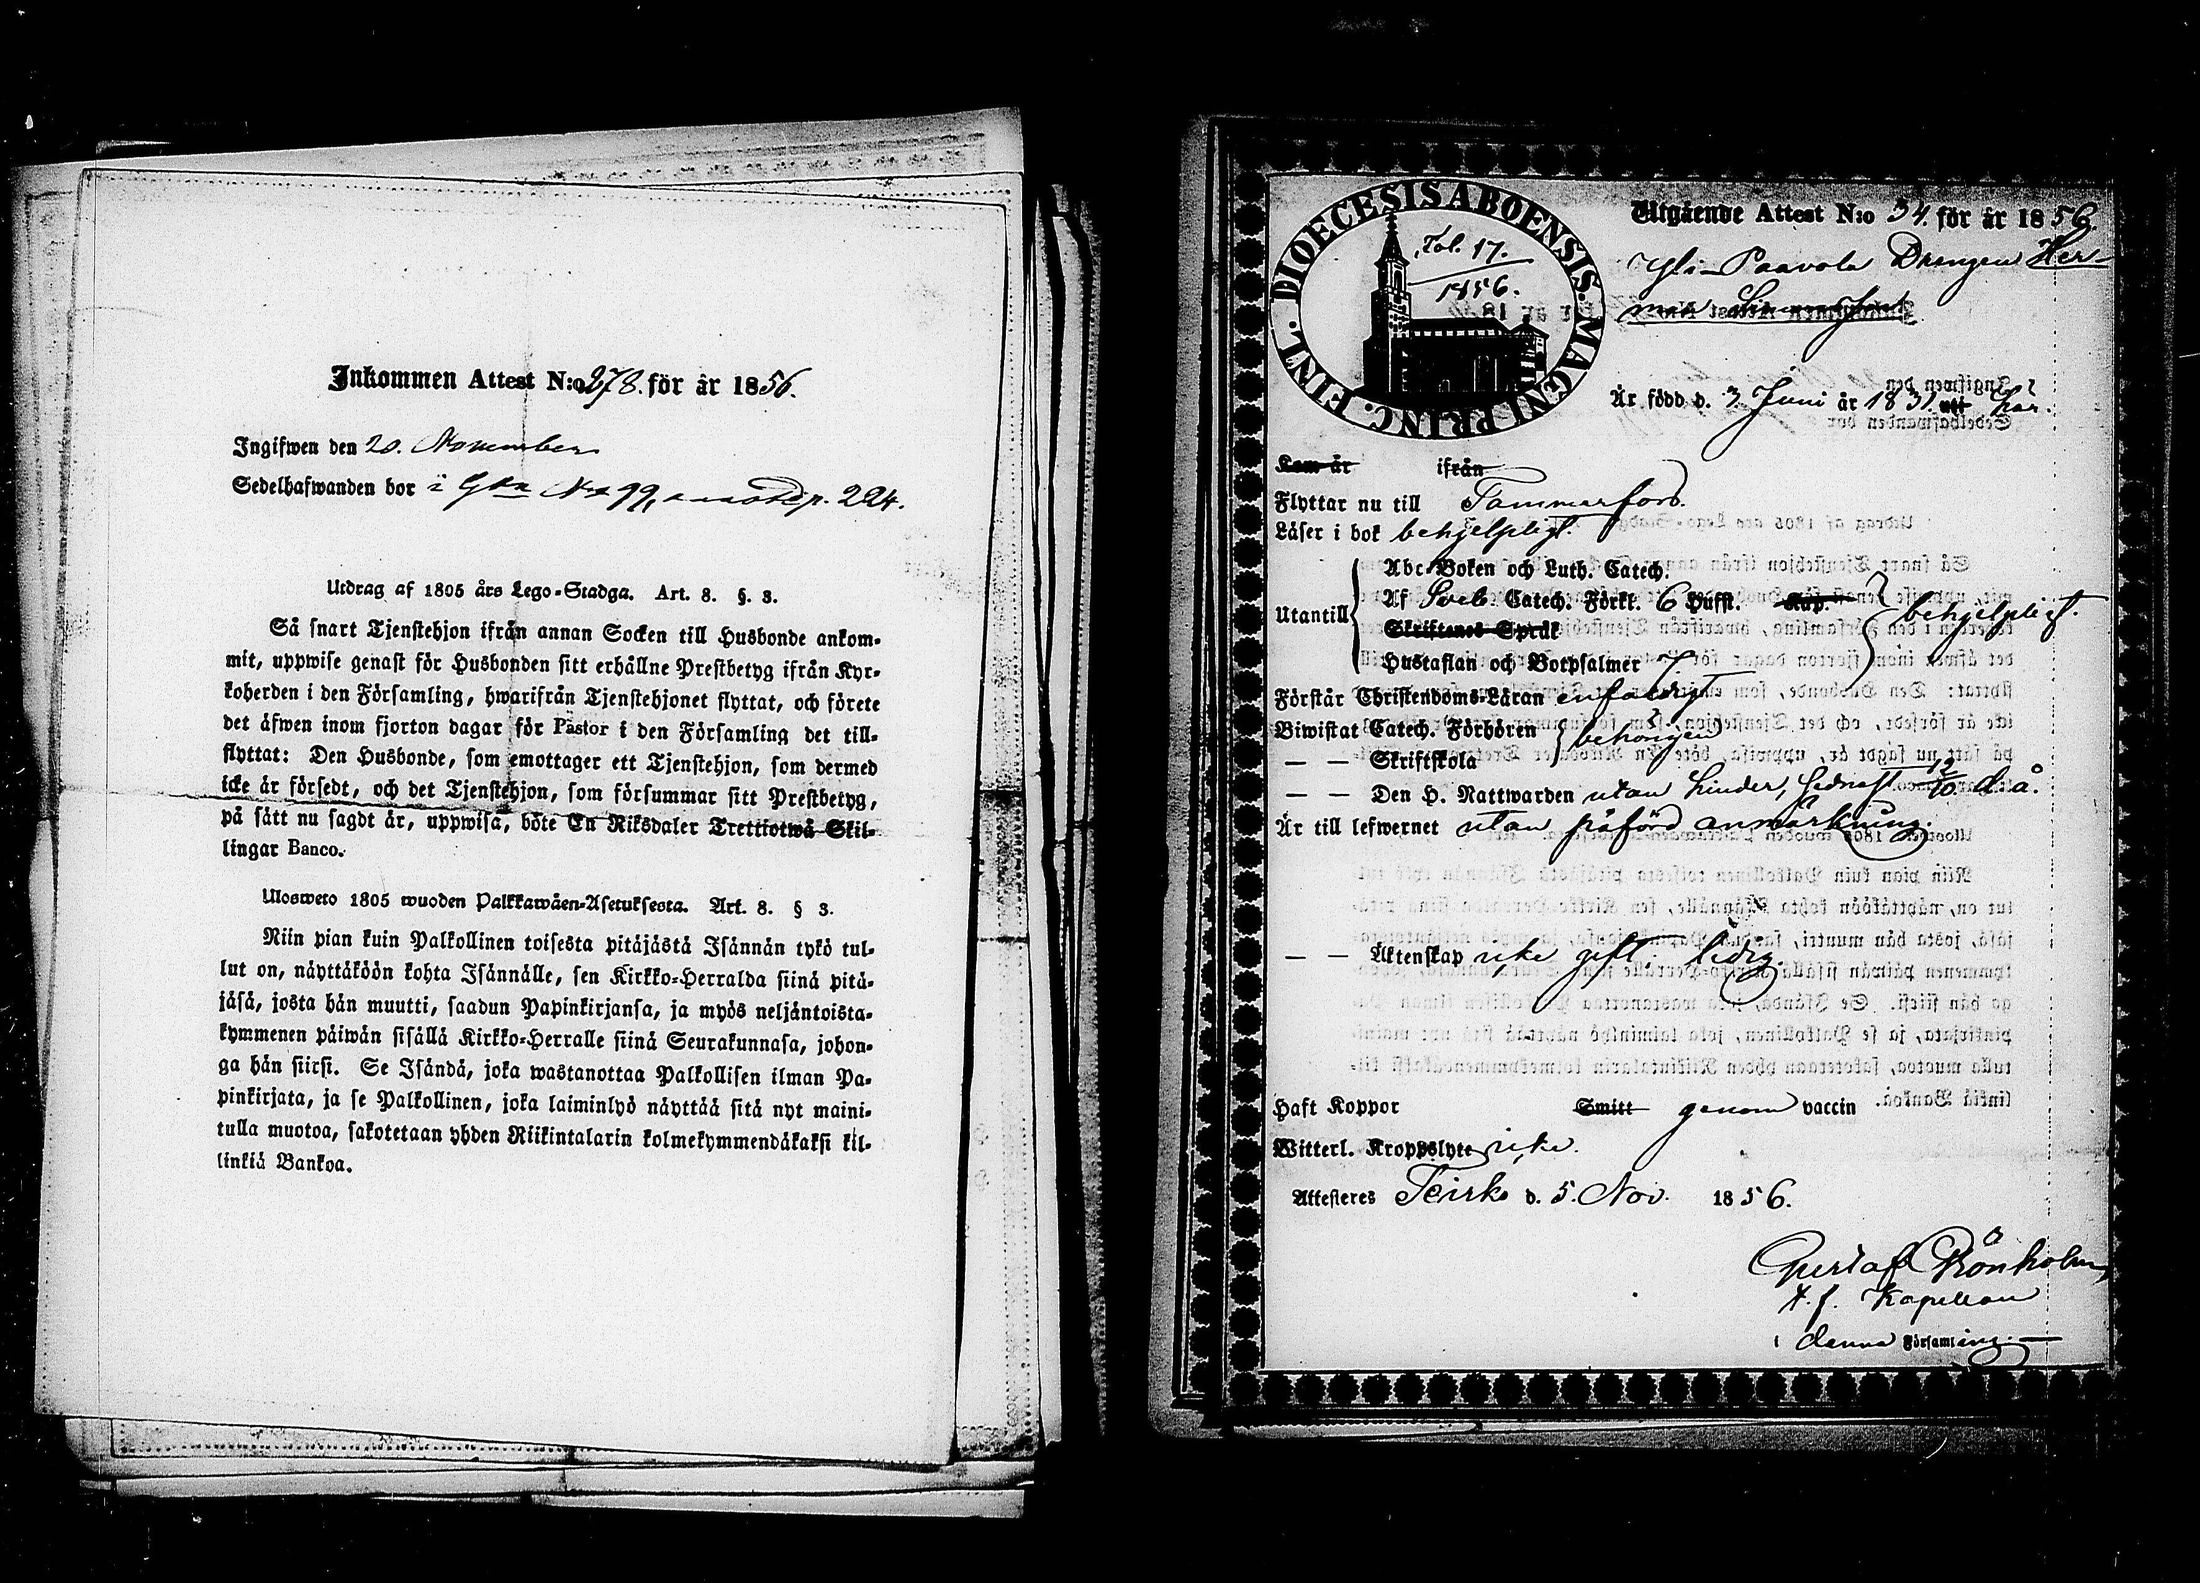 Inkommen Attest N:o 278. för år 1856.
Ingifwen den 20. November
Sedelhafwanden bor i Gdn No 99, p. 224.
Utdrag af 1805 års Lego-Stadga. Art. 8. §. 3.
Så snart Tjenstehjon ifrån annan Socken till Husbonde ankom-
mit, uppwise genast för Husbonden sitt erhållne Prestbetyg ifrån Kyr-
koherden i den Församling, hwarifrån Tjenstehjonet flyttat, och förete
det äfwen inom fjorton dagar för Pastor i den Församling det till-
flyttat: Den Husbonde, som emottager ett Tjenstehjon, som dermed
icke är försedt, och det Tjenstehjon, som försummar sitt Prestbetyg,
på sätt nu sagdt är, uppwisa, böte En Riksdaler Trettiotwå Skil-
lingar Banco.
Ulosweto 1805 wuoden Palkkawäen-Asetuksesta. Art. 8. § 3.
Niin pian kuin Palkollinen toisesta pitäjästä Isännän tykö tul-
lut on, näyttäköön kohta Isännälle, sen Kirkko-Herralda siinä pitä-
jäsä, josta hän muutti, saadun Papinkirjansa, ja myös neljäntoista-
kymmenen päiwän sisällä Kirkko-Herralle siinä Seurakunnasa, johon-
ga hän siirsi. Se Isändä, joka wastanottaa Palkollisen ilman Pa-
pinkirjata, ja se Palkollinen, joka laiminlyö näyttää sitä nyt maini-
tulla muotoa, sakotetaan yhden Riikintalarin kolmekymmendäkaksi kil-
linkiä Bankoa.
DIOECESIS ABOENSIS. MAGNI PRINC. FINL.
Fol. 17.
1856.
Utgående Attest N:o 34. för år 1856.
Yli-Paavola Drängen Her-
man
Är född d. 3. Juni år 1831. uti här.
Kom år ifrån
Flyttar nu till Tammerfors.
Läser i bok behjelpligt.
Abc-Boken och Luth. Catech.
Utantill Af Sveb. Catech. Förkl. 6 Hufst. Kap. behjelpligt.
Skriftenes Språk
Hustaflan och Botpsalmer 7
Förstår Christendoms-Läran enfaldigt
Biwistat Catech. Förhören behörigen
— — Skriftskola
— — Den H. Nattwarden utan hinder, sednast 12/10 d. å.
Är till lefwernet utan påförd anmärkning.
— — Äktenskap icke gift. ledig.
Haft Koppor Smitt genom vaccin
Witterl. Kroppslyte icke.
Attesteres Teisko d. 5. Nov. 1856.
Gustaf Rönholm
t. f. Kapellan
i denna Församling.